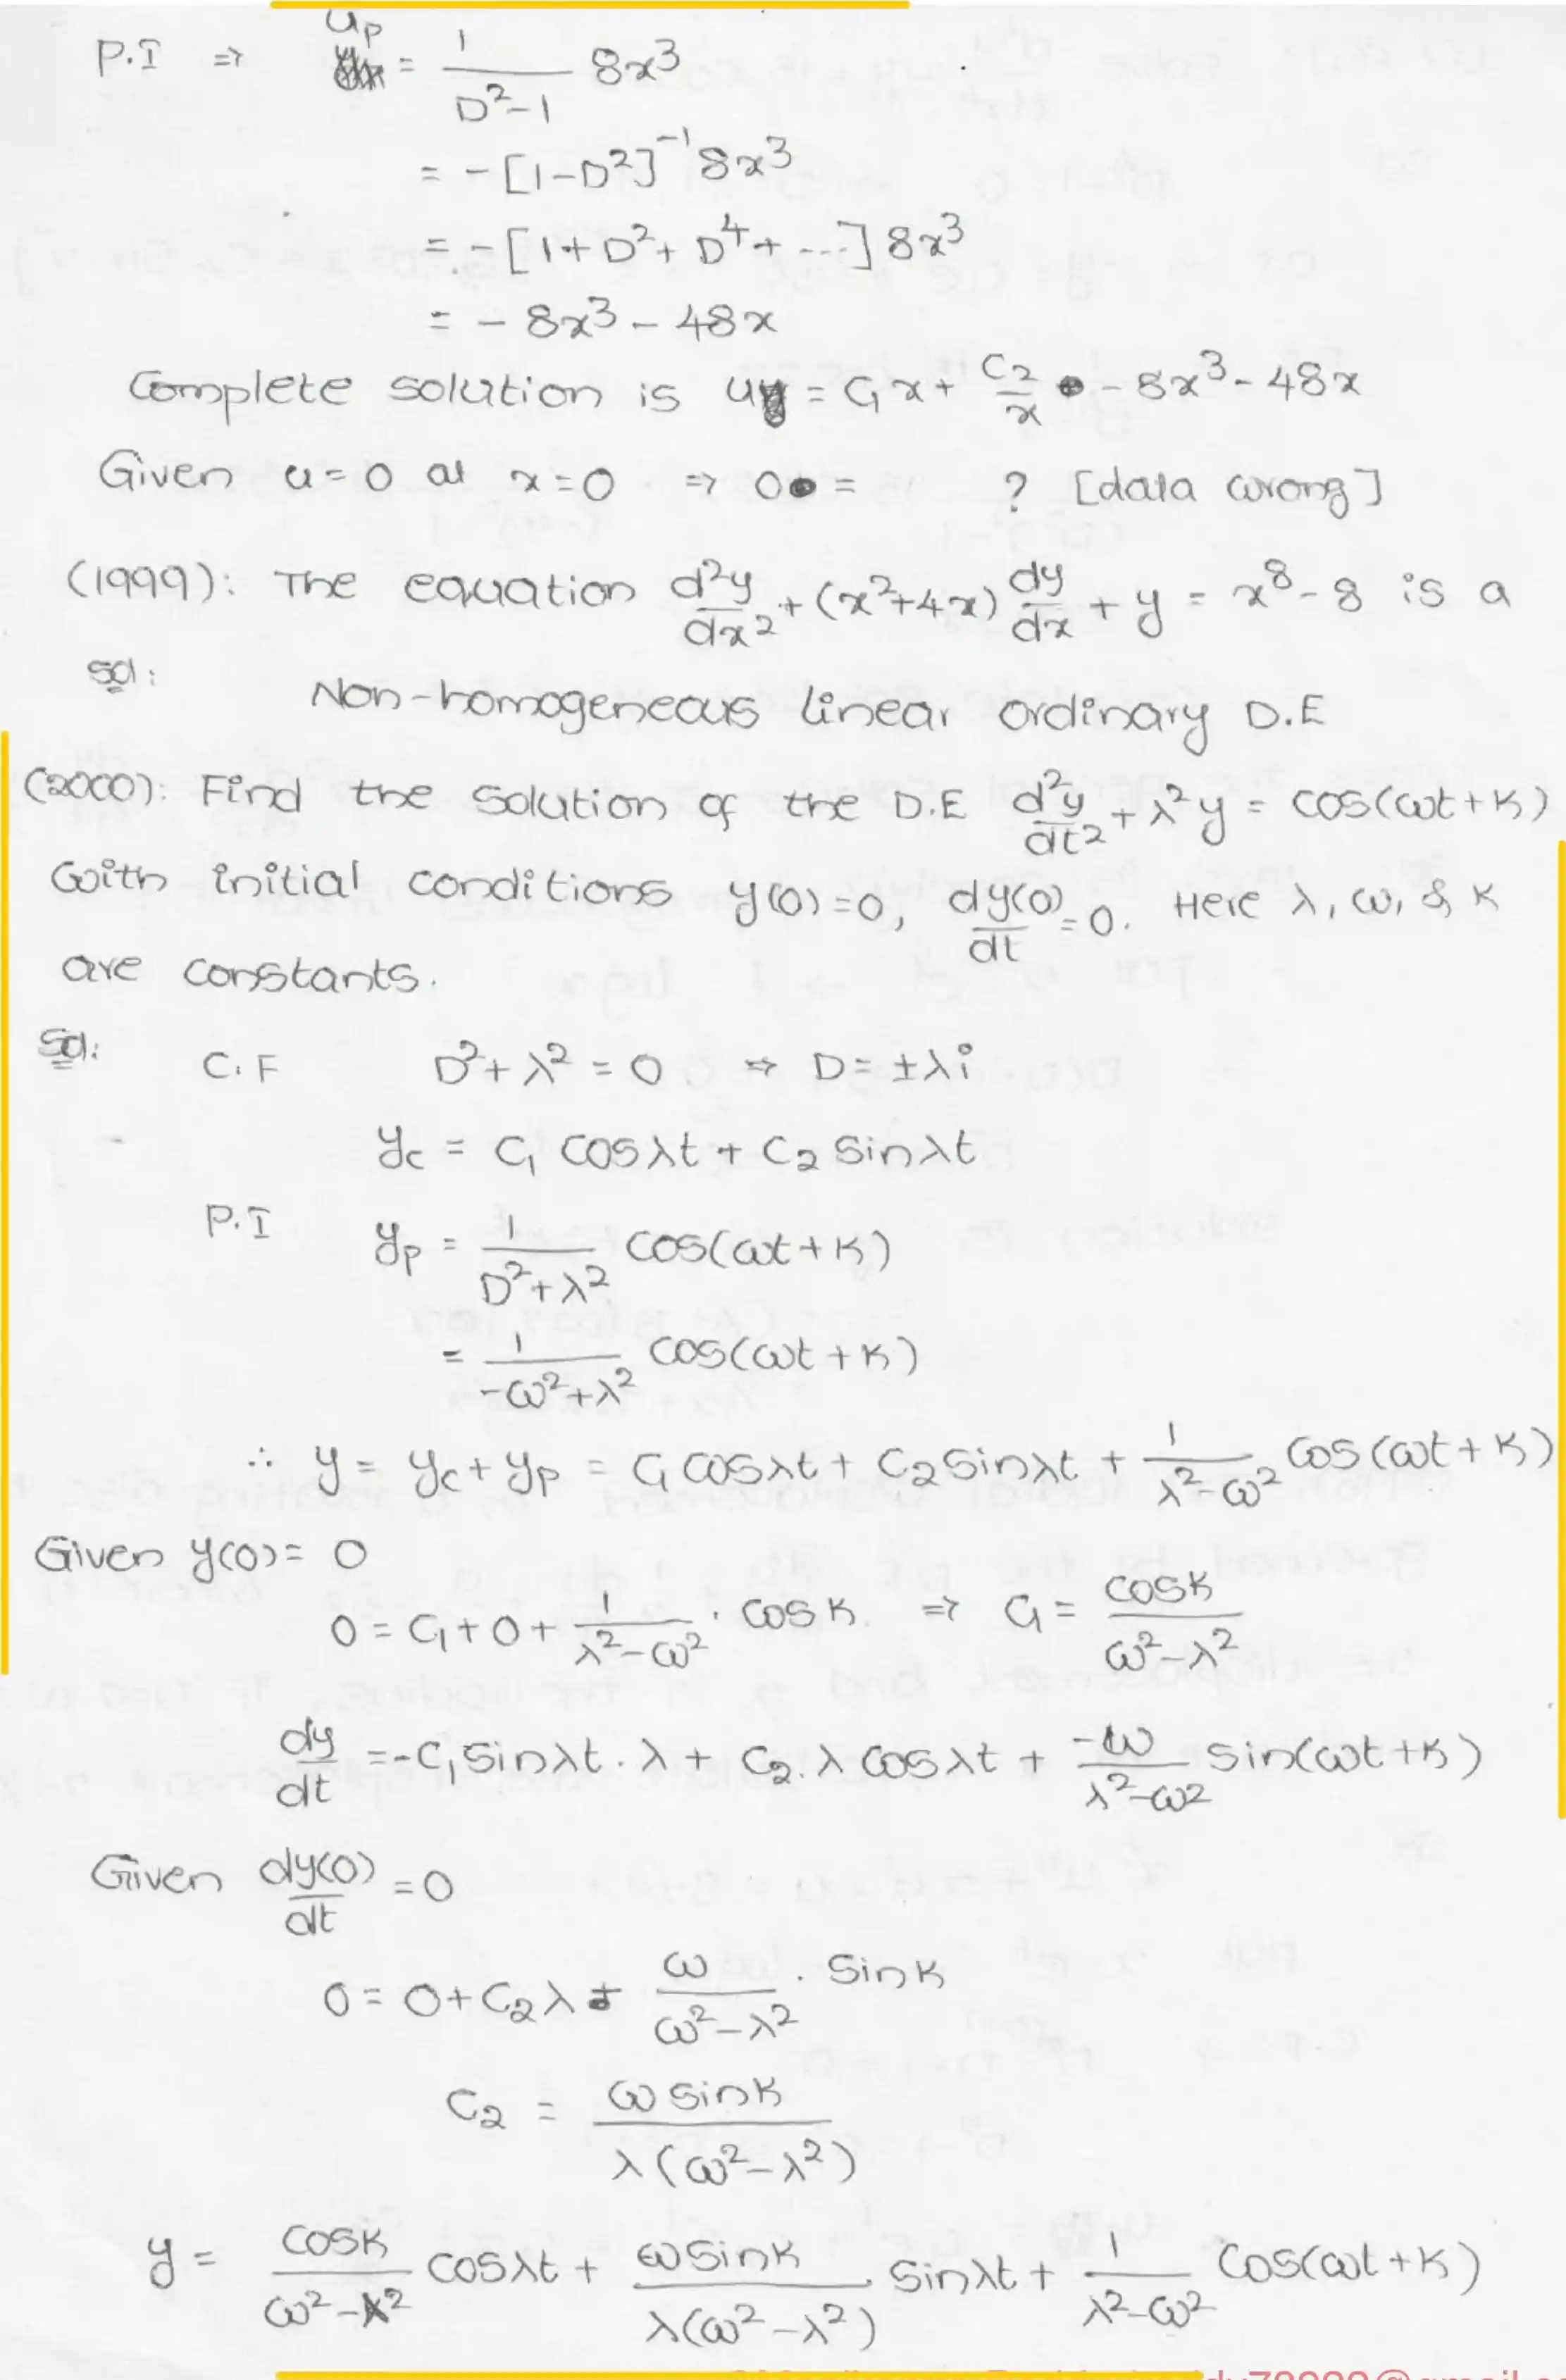 P.I ⇒ u_p = 1/(D²-1) 8x³
= -[1-D²]⁻¹ 8x³
= -[1+D²+D⁴+ ---] 8x³
= -8x³ - 48x
Complete solution is u = C₁x + C₂/x - 8x³ - 48x
Given u=0 at x=0 ⇒ 0 = ? [data wrong]
(1999): The equation d²y/dx² + (x²+4x) dy/dx + y = x⁸-8 is a
Sol:
Non-homogeneous linear ordinary D.E
(2000): Find the solution of the D.E d²y/dt² + λ²y = cos(ωt+K)
with initial conditions y(0)=0, dy(0)/dt = 0. Here λ, ω, & K
are constants.
Sol: C.F D²+λ² = 0 ⇒ D = ±λi
y_c = C₁ cosλt + C₂ sinλt
P.I y_p = 1/(D²+λ²) cos(ωt+K)
= 1/(-ω²+λ²) cos(ωt+K)
∴ y = y_c + y_p = C₁ cosλt + C₂ sinλt + 1/(λ²-ω²) cos(ωt+K)
Given y(0) = 0
0 = C₁ + 0 + 1/(λ²-ω²) · cosK ⇒ C₁ = cosK/(ω²-λ²)
dy/dt = -C₁ sinλt · λ + C₂ . λ cosλt + -ω/(λ²-ω²) sin(ωt+K)
Given dy(0)/dt = 0
0 = 0 + C₂λ ω/(ω²-λ²) · sinK
C₂ = ω sinK/λ(ω²-λ²)
y = cosK/(ω²-λ²) cosλt + ω sinK/λ(ω²-λ²) . sinλt + 1/(λ²-ω²) cos(ωt+K)